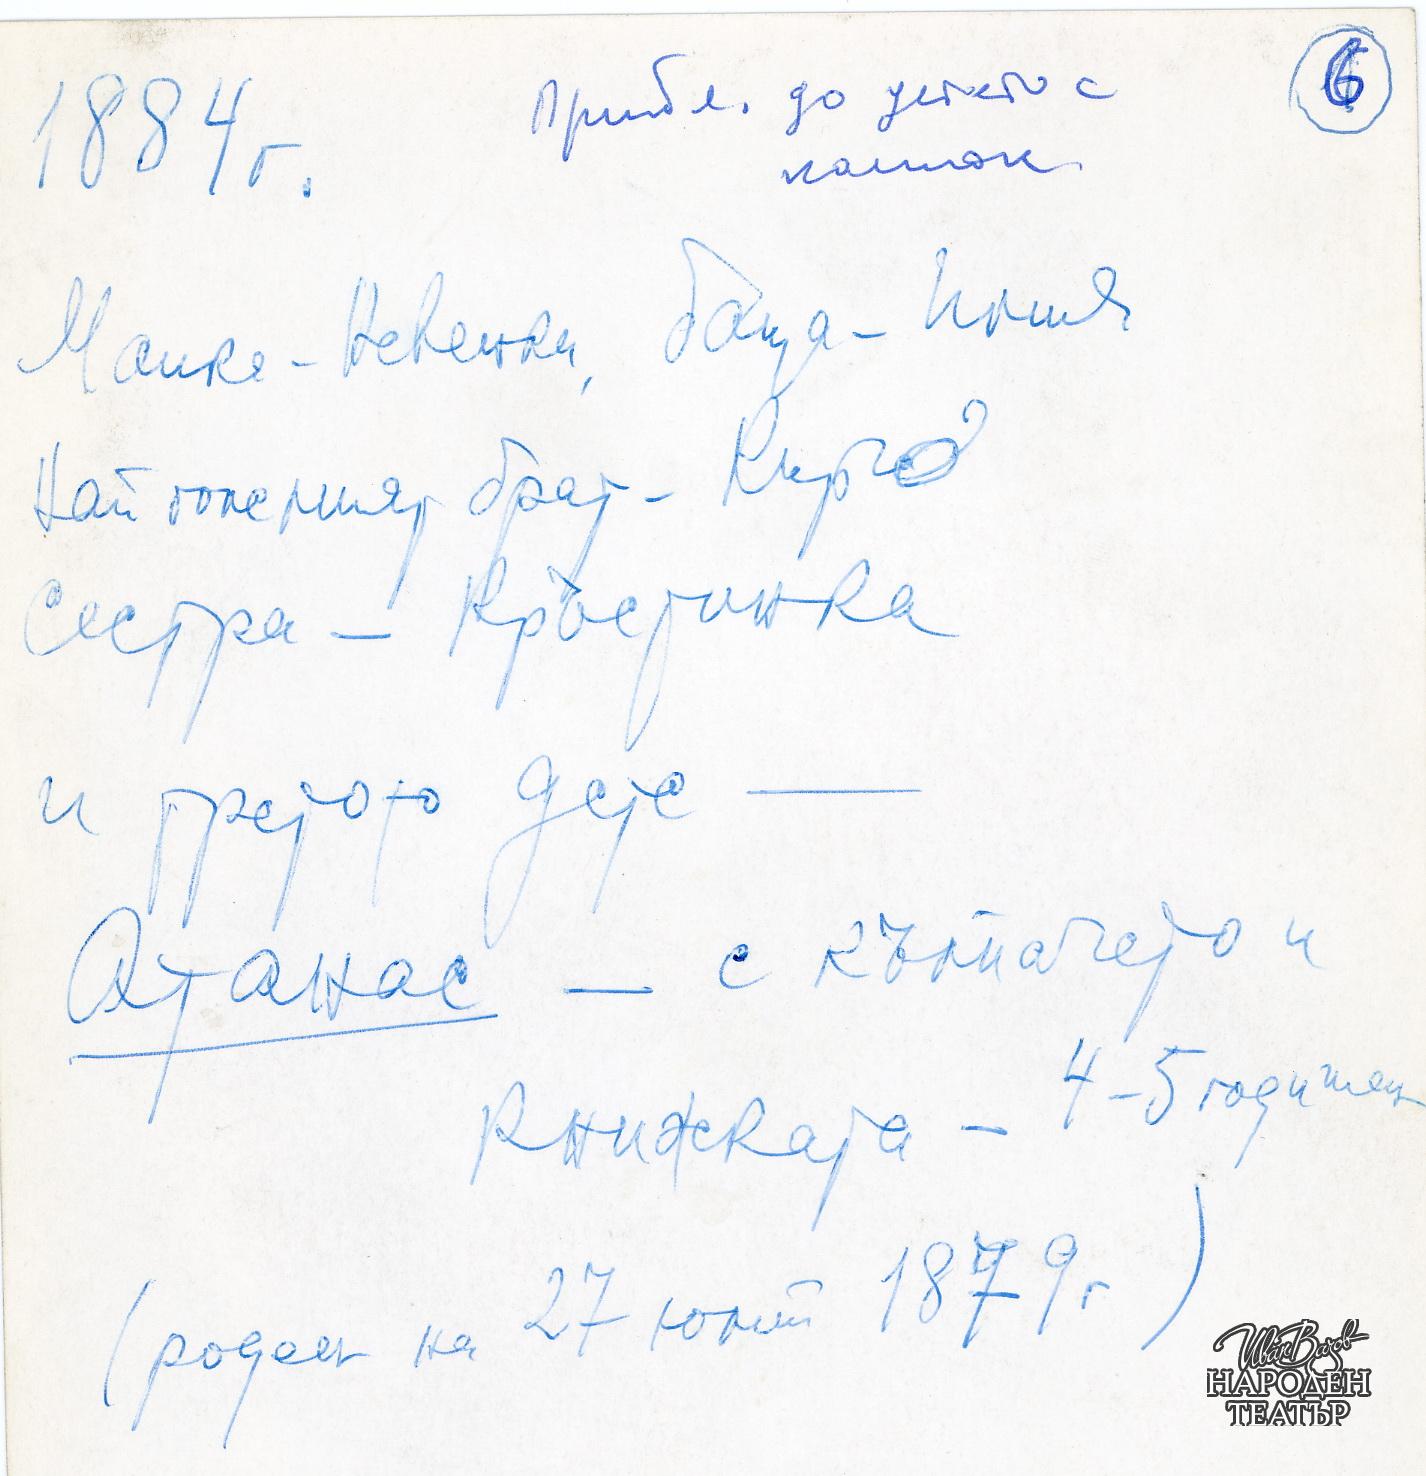 1884 г.
Прибл. до детето с
калпак.
6
Майка - Невенка, баща - Илия
Най големият брат - Кирчо
Сестра — Кръстинка
и третото дете —
Атанас — с кълпачето и
книжката - 4-5 годишен
(роден на 27 юлий 1879 г)
Иван Вазов
НАРОДЕН
ТЕАТЪР